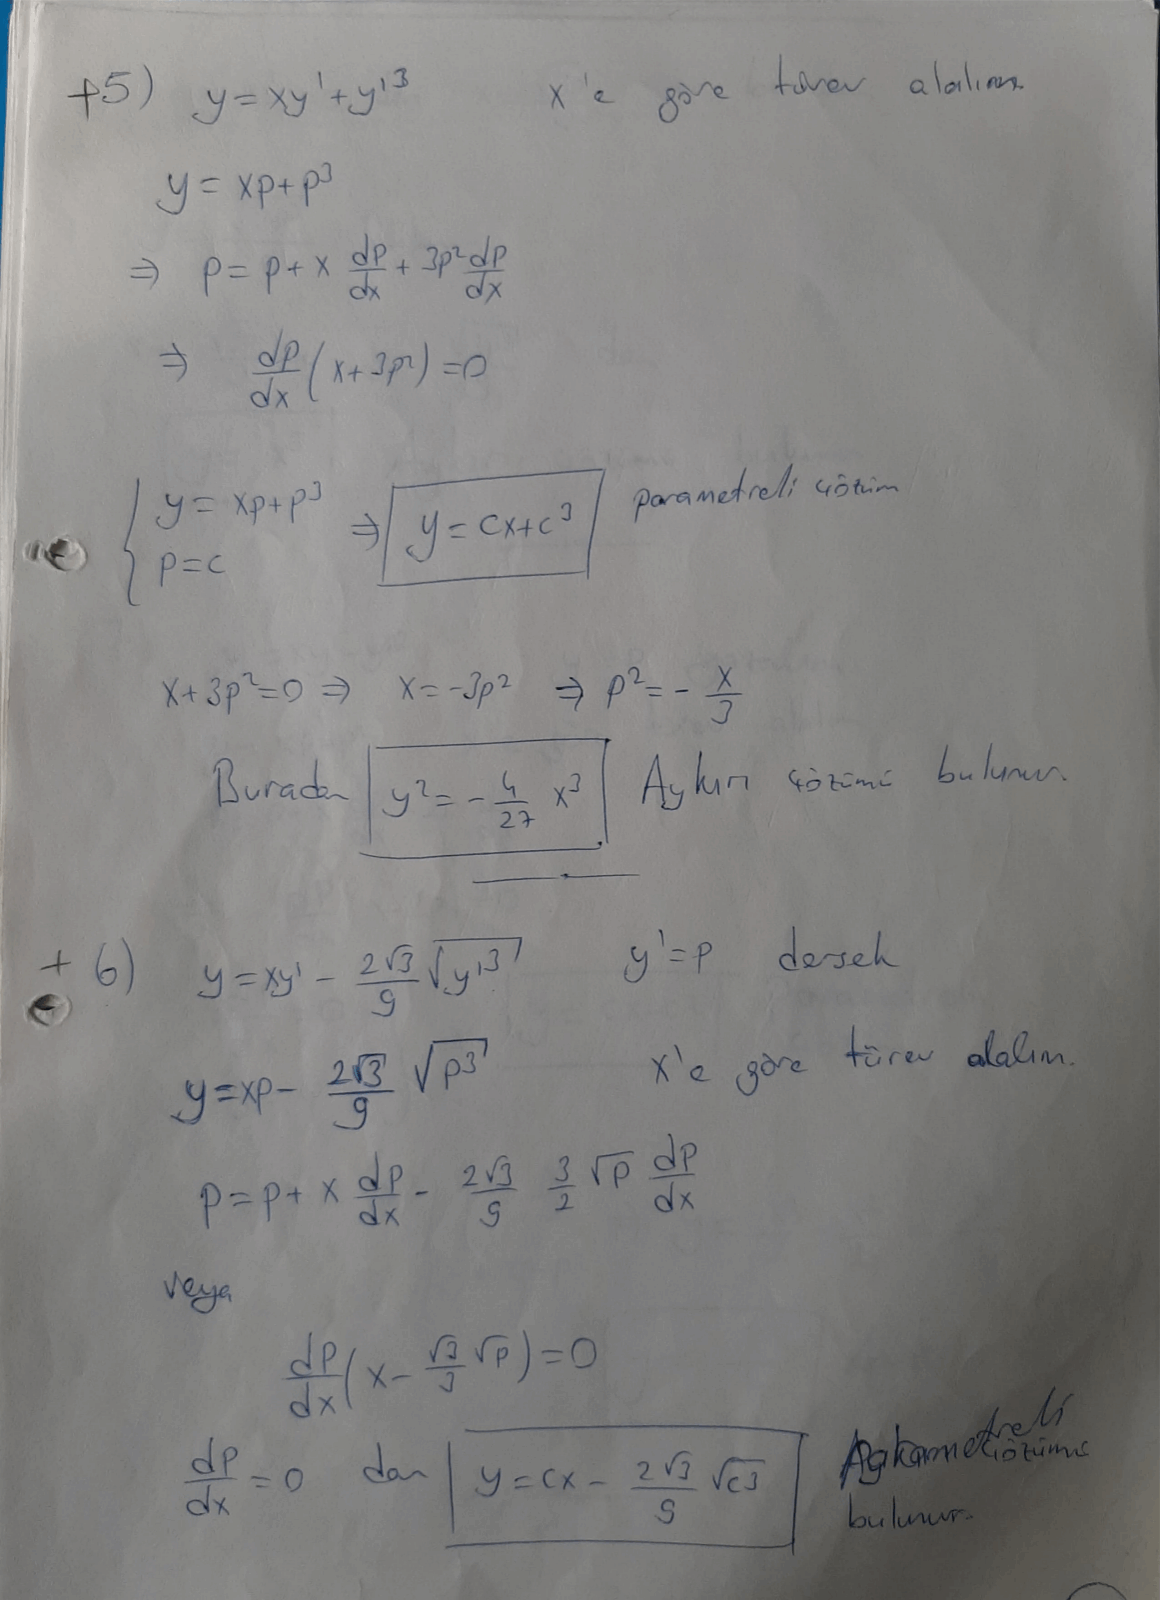 +5) y = xy' + y'³ x'e göre türev alalım.
y = xp + p³
⇒ p = p + x dp/dx + 3p² dp/dx
⇒ dp/dx (x + 3p²) = 0
{ y = xp + p³ ⇒ y = cx + c³ parametreli çözüm
p = c
x + 3p² = 0 ⇒ x = -3p² ⇒ p² = - x/3
Buradan y² = - 4/27 x³ Aykırı çözümü bulunur.
+ 6) y = xy' - 2√3/9 √y'³ y' = p dersek
y = xp - 2√3/9 √p³ x'e göre türev alalım.
p = p + x dp/dx - 2√3/9 3/2 √p dp/dx
veya
dp/dx (x - √3/3 √p) = 0
dp/dx = 0 dan y = cx - 2√3/9 √c³ Parametreli çözümü
bulunur.